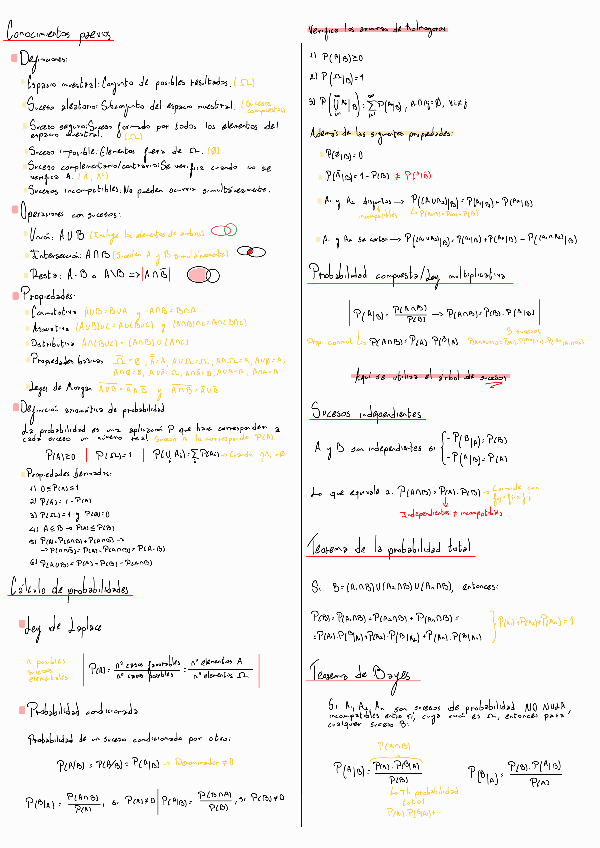 Conocimientos previos
Definiciones:
Espacio muestral: Conjunto de posibles resultados. (Ω)
Suceso aleatorio: Subconjunto del espacio muestral. (Sucesos compuestos)
Suceso seguro: Suceso formado por todos los elementos del
espacio muestral. (Ω)
Suceso imposible: Elementos fuera de Ω. (Ø)
Suceso complementario/contrario: Se verifica cuando no se
verifica A.
Sucesos incompatibles: No pueden ocurrir simultáneamente.
Operaciones con sucesos:
Unión: A∪B (Incluye los elementos de ambos)
Intersección: A∩B (Suceden A y B simultáneamente)
Resta: A-B o A\B => |A∩B̅|
Propiedades:
Conmutativa A∪B=B∪A y A∩B=B∩A
Asociativa (A∪B)∪C=A∪(B∪C) y (A∩B)∩C=A∩(B∩C)
Distributiva
Propiedades básicas
Leyes de Morgan
Definición axiomática de probabilidad
La probabilidad es una aplicación P que hace corresponder a
cada suceso un número real. Suceso A le corresponde P(A)
P(A)≥0 | P(Ω)=1
Propiedades derivadas:
1) 0≤P(A)≤1
2) P(A̅)=1-P(A)
3) P(Ω)=1 y P(Ø)=0
4) A⊆B → P(A)≤P(B)
6) P(A∪B)=P(A)+P(B)-P(A∩B)
Cálculo de probabilidades
Ley de Laplace
n posibles
sucesos
elementales
P(A)= nº casos favorables / nº casos posibles = nº elementos A / nº elementos Ω
Probabilidad condicionada
Probabilidad de un suceso condicionada por otro:
→ Denominador ≠0
P(B/A)= P(A∩B)/P(A), si P(A)≠0 | P(A/B)= P(B∩A)/P(B), si P(B)≠0
Verifica los axiomas de Kolmogorov
1) P(A/B)≥0
2) P(Ω/B)=1
Además de las siguientes propiedades:
P(Ø/B)=0
P(A̅/B)=1-P(A/B)
A₁ y A₂ disjuntos → P((A₁∪A₂)/B)=P(A₁/B)+P(A₂/B)
incompatibles
Probabilidad compuesta/Ley multiplicativa
P(A/B)= P(A∩B)/P(B) → P(A∩B)=P(B)·P(A/B)
3 sucesos
P(A∩B)=P(A)·P(B/A)
Aquí se utiliza el árbol de sucesos
Sucesos independientes
A y B son independientes si { - P(B/A)=P(B)
- P(A/B)=P(A)
Lo que equivale a: P(A∩B)=P(A)·P(B) → Coincide con
Independientes ≠ incompatibles
Teorema de la probabilidad total
Si B=(A₁∩B)∪(A₂∩B)∪(Aₙ∩B), entonces:
P(B)=P(A₁∩B)+P(A₂∩B)+P(Aₙ∩B)=
=P(A₁)·P(B/A₁)+P(A₂)·P(B/A₂)+P(Aₙ)·P(B/Aₙ)
P(A₁)+P(A₂)+P(Aₙ)=1
Teorema de Bayes
Si A₁, A₂, Aₙ son sucesos de probabilidad NO NULA,
incompatibles entre sí, cuya unión es Ω, entonces para
cualquier suceso B:
P(A∩B)
P(A/B)= P(A)·P(B/A) / P(B)
P(B/A)= P(B)·P(A/B) / P(A)
↳ Th probabilidad
total